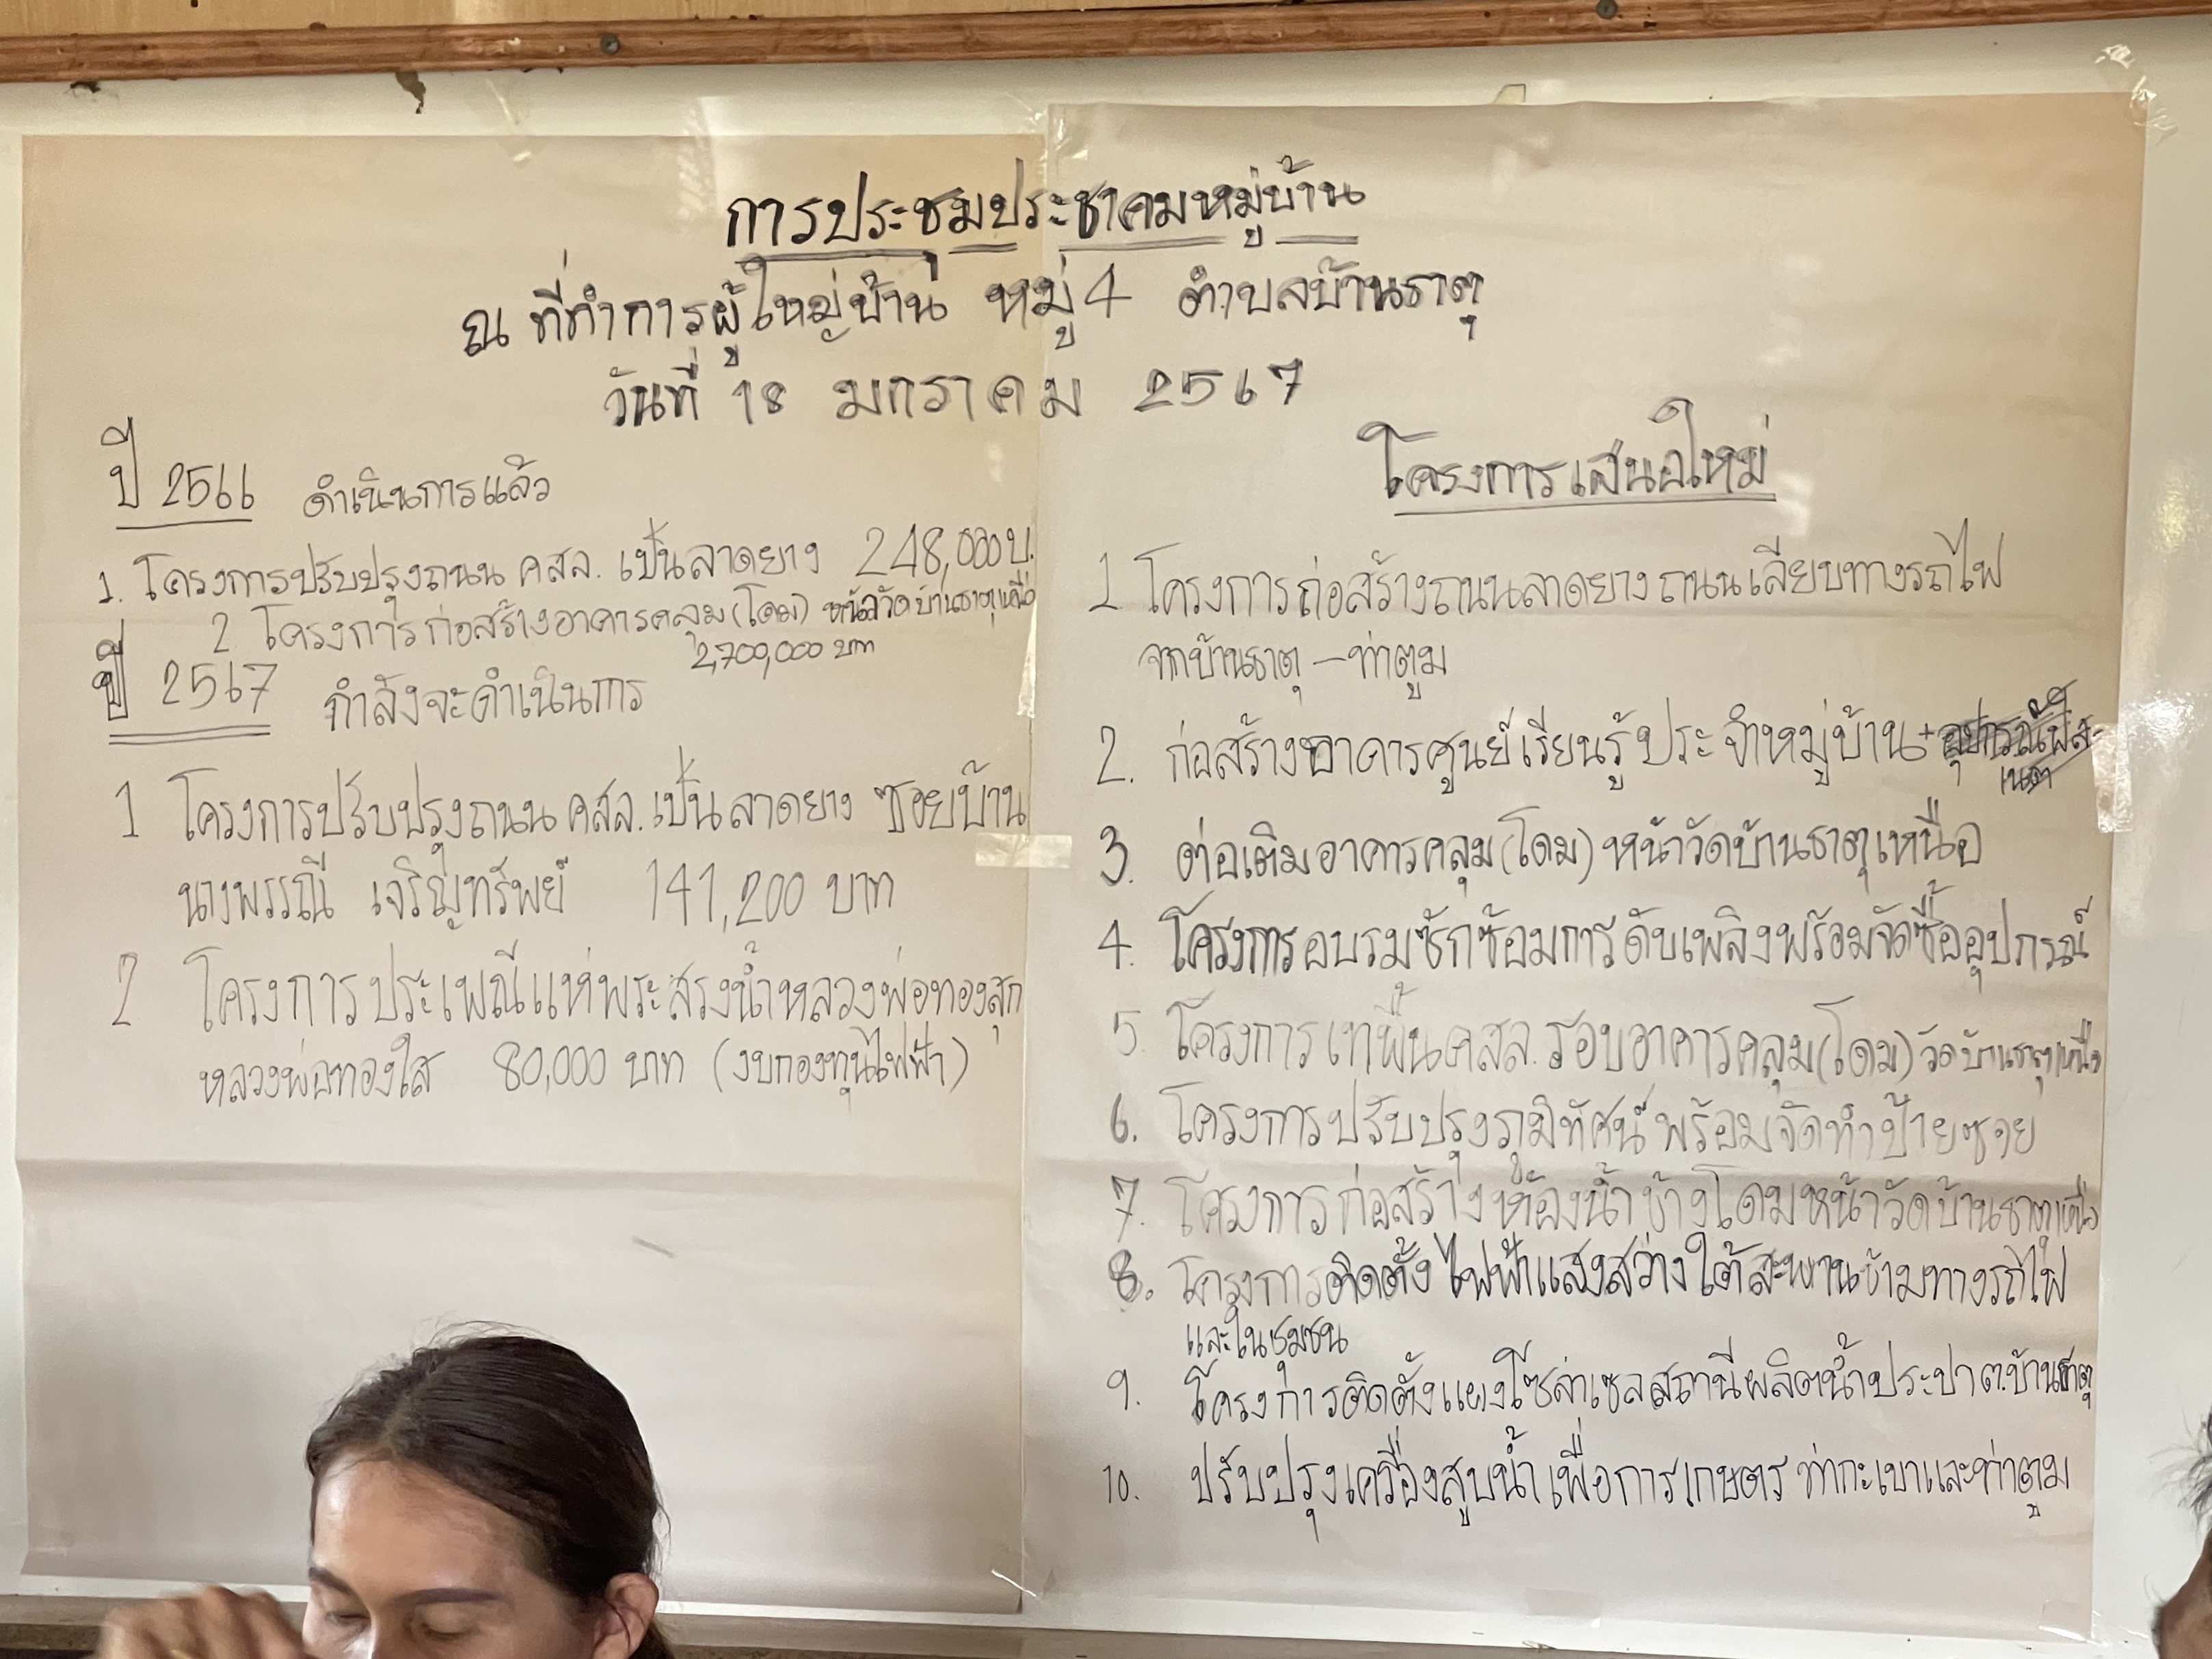 การประชุมประชาคมหมู่บ้าน
ณ ที่ทำการผู้ใหญ่บ้าน หมู่ 4 ตำบลบ้านธาตุ
วันที่ 18 มกราคม 2567
ปี 2566 ดำเนินการแล้ว
1. โครงการปรับปรุงถนน คสล. เป็นลาดยาง 248,000 บ.
2 โครงการก่อสร้างอาคารคลุม (โดม) หน้าวัดบ้านธาตุเหนือ
2,700,000 บาท
ปี 2567 กำลังจะดำเนินการ
1 โครงการปรับปรุงถนน คสล. เป็นลาดยาง ซอยบ้าน
นางพรรณี เจริญทรัพย์ 141,200 บาท
2 โครงการประเพณีแห่พระสรงน้ำหลวงพ่อทองสุก
หลวงพ่อทองใส 80,000 บาท (งบกองทุนไฟฟ้า)
โครงการเสนอใหม่
1 โครงการก่อสร้างถนนลาดยางถนนเลียบทางรถไฟ
จากบ้านธาตุ – ท่าตูม
2. ก่อสร้างอาคารศูนย์เรียนรู้ประจำหมู่บ้าน +
3. ต่อเติมอาคารคลุม (โดม) หน้าวัดบ้านธาตุเหนือ
4. โครงการอบรมซักซ้อมการดับเพลิงพร้อมจัดซื้ออุปกรณ์
5. โครงการเทพื้นคสล. รอบอาคารคลุม (โดม) วัดบ้านธาตุเหนือ
6. โครงการปรับปรุงภูมิทัศน์พร้อมจัดทำป้ายซอย
7. โครงการก่อสร้างห้องน้ำข้างโดมหน้าวัดบ้านธาตุเหนือ
8. โครงการติดตั้งไฟฟ้าแสงสว่างใต้สะพานข้ามทางรถไฟ
และในชุมชน
9. โครงการติดตั้งแผงโซล่าเซลสถานีผลิตน้ำประปา ต.บ้านธาตุ
10. ปรับปรุงเครื่องสูบน้ำเพื่อการเกษตร ท่ากะเบาและท่าตูม